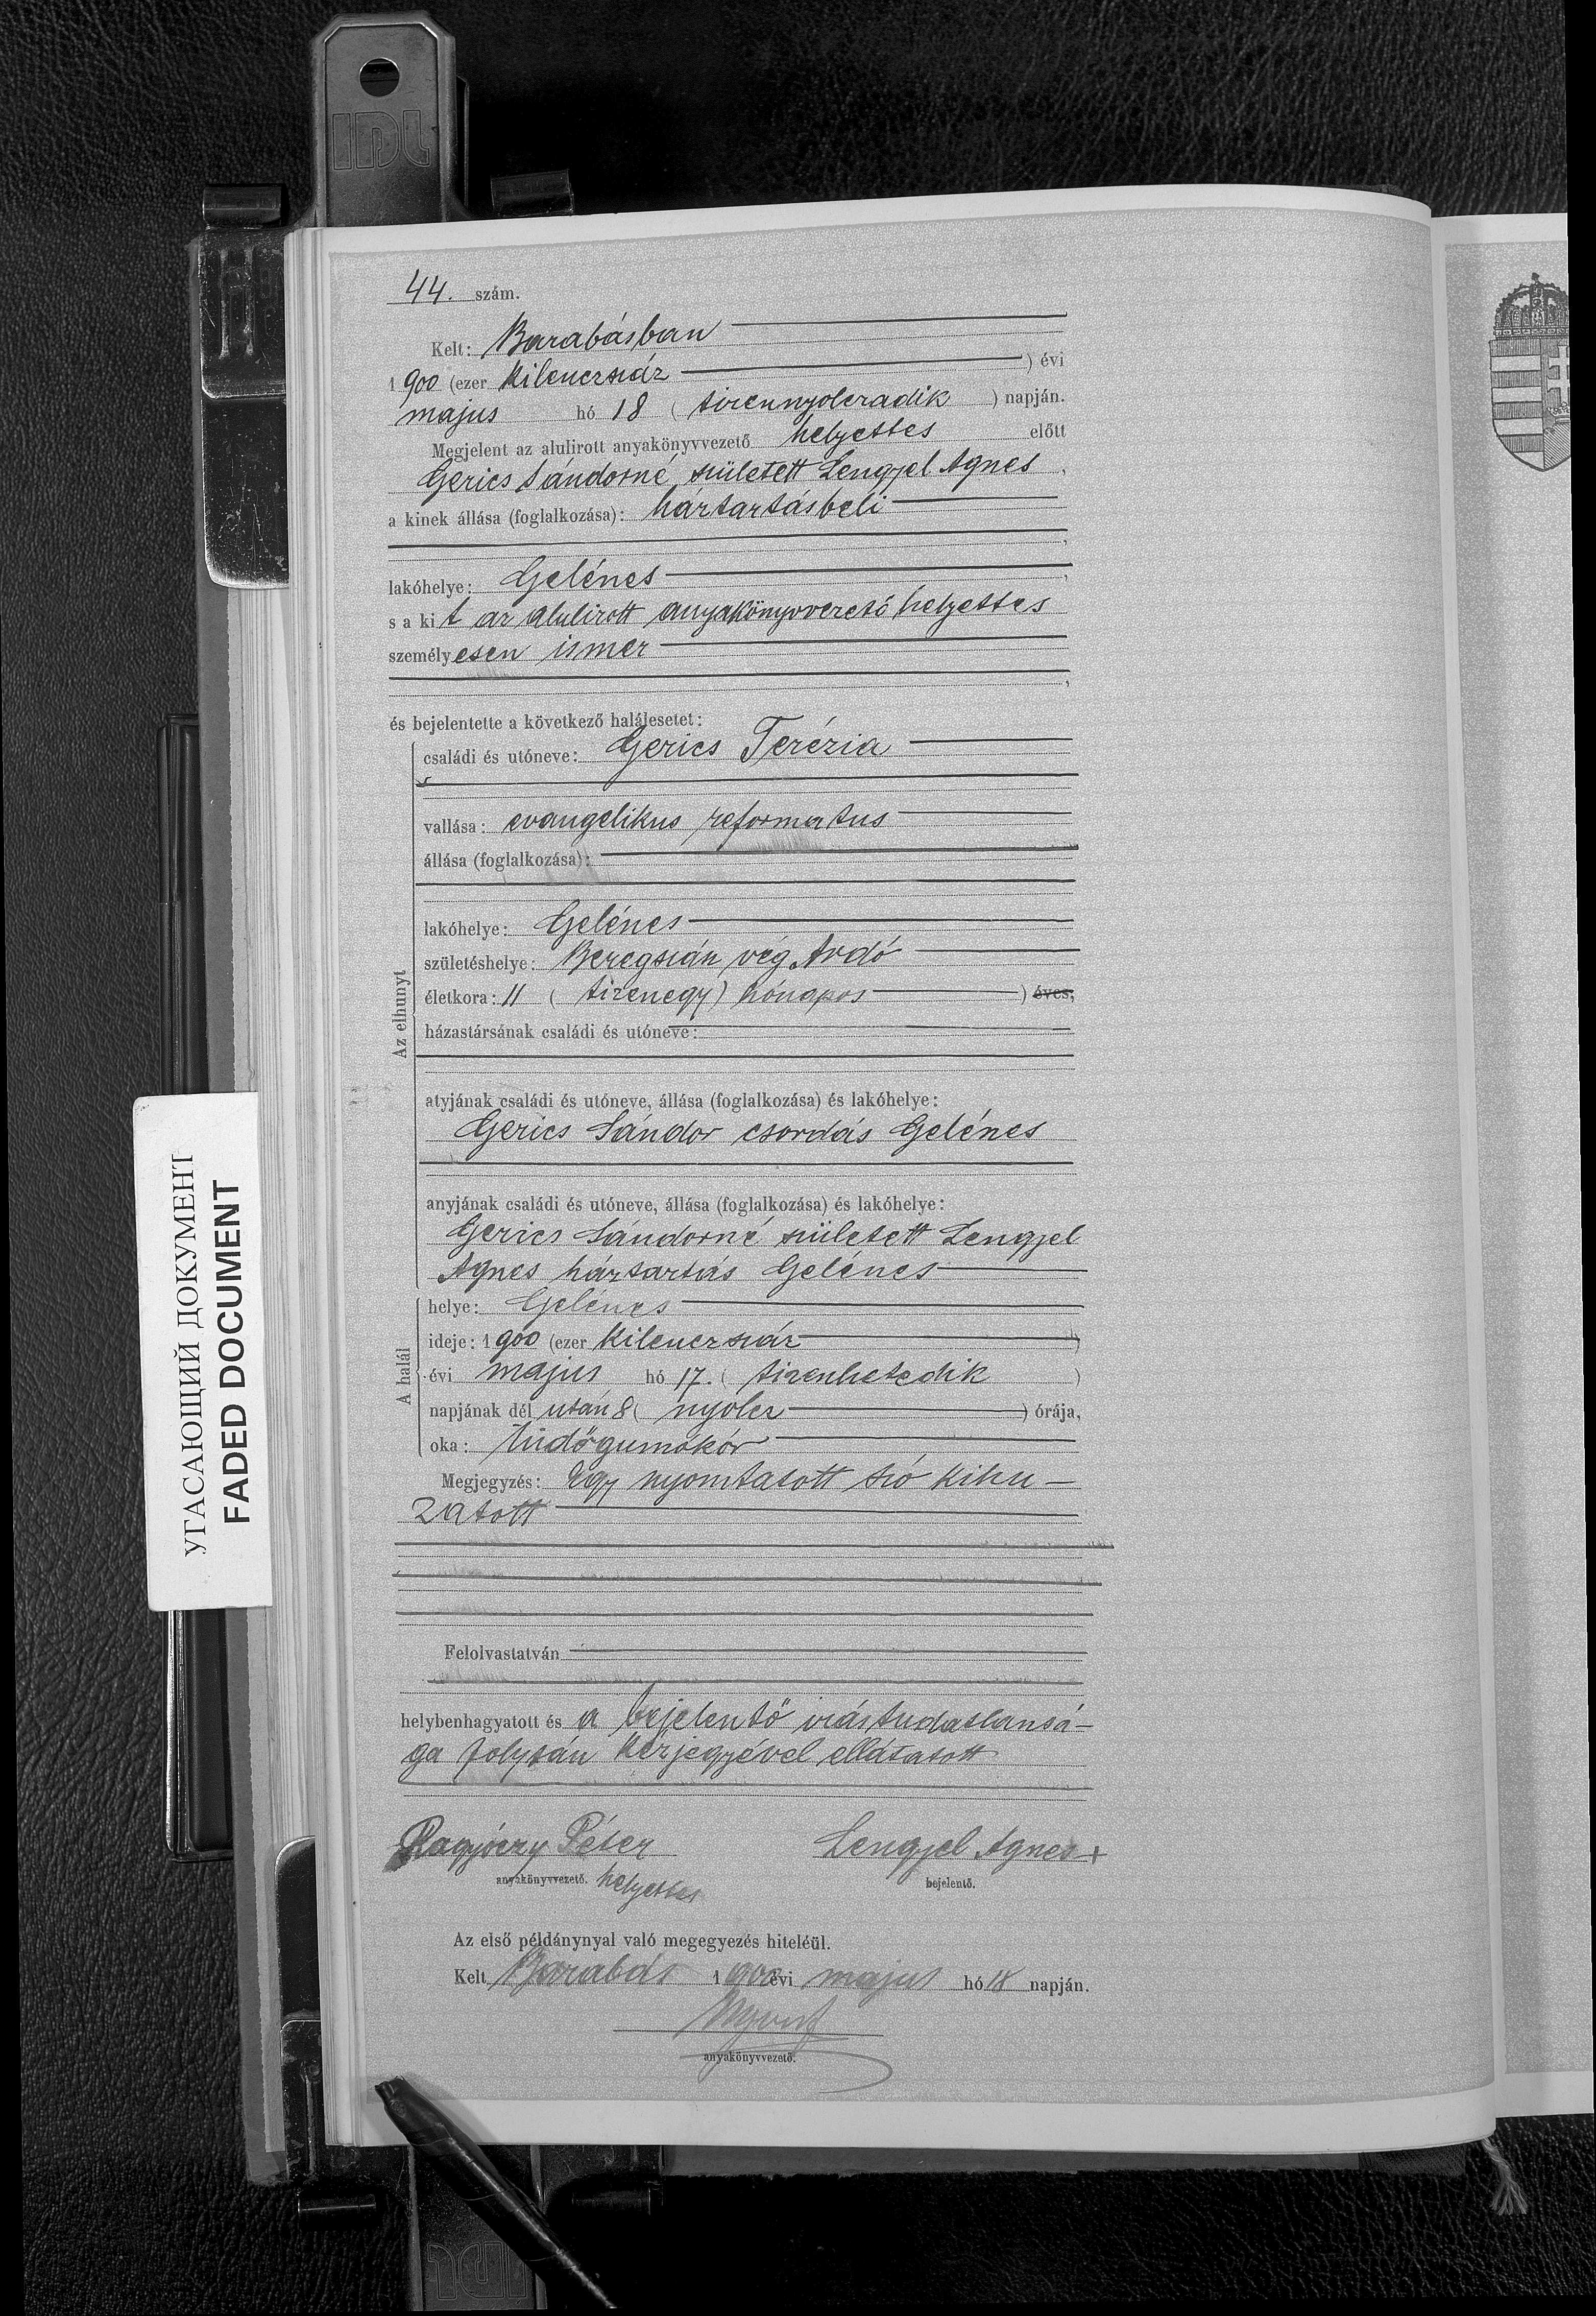 IDL
44. szám.
Kelt: Barabásban
1900 (ezer kilenczszáz ) évi
majus hó 18 ( tizennyolczadik ) napján.
Megjelent az alulirott anyakönyvvezető helyettes előtt
Gerics Sándorné született Lengyel Agnes,
a kinek állása (foglalkozása): háztartásbeli
,
lakóhelye: Gelénes,
s a kit az alulirott anyakönyvvezető helyettes
személyesen ismer
,
és bejelentette a következő halálesetet:
Az elhunyt
családi és utóneve: Gerics Terézia
vallása: evangelikus reformatus
állása (foglalkozása):
lakóhelye: Gelénes
születéshelye: Beregszász vég Ardó
életkora: 11 ( tizenegy) hónapos ) éves,
házastársának családi és utóneve:
atyjának családi és utóneve, állása (foglalkozása) és lakóhelye:
Gerics Sándor csordás Gelénes
anyjának családi és utóneve, állása (foglalkozása) és lakóhelye:
Gerics Sándorné született Lengyel
Agnes háztartás Gelénes
A halál
helye: Gelénes
ideje: 1900 (ezer kilenczszáz )
évi majus hó 17. ( tizenhetedik )
napjának dél után 8 ( nyolcz ) órája,
oka: tüdőgumókór
Megjegyzés: Egy nyomtatott szó kihu-
zatott
Felolvastatván
helybenhagyatott és a bejelentő irástudatlansá-
ga folytán kézjegyével ellátatott
Ragyóczy Péter
anyakönyvvezető. helyettes
Lengyel Agnes +
bejelentő.
Az első példánynyal való megegyezés hiteléül.
Kelt Barabás 1900 évi majus hó 18 napján.
anyakönyvvezető.
УГАСАЮЩИЙ ДОКУМЕНТ
FADED DOCUMENT